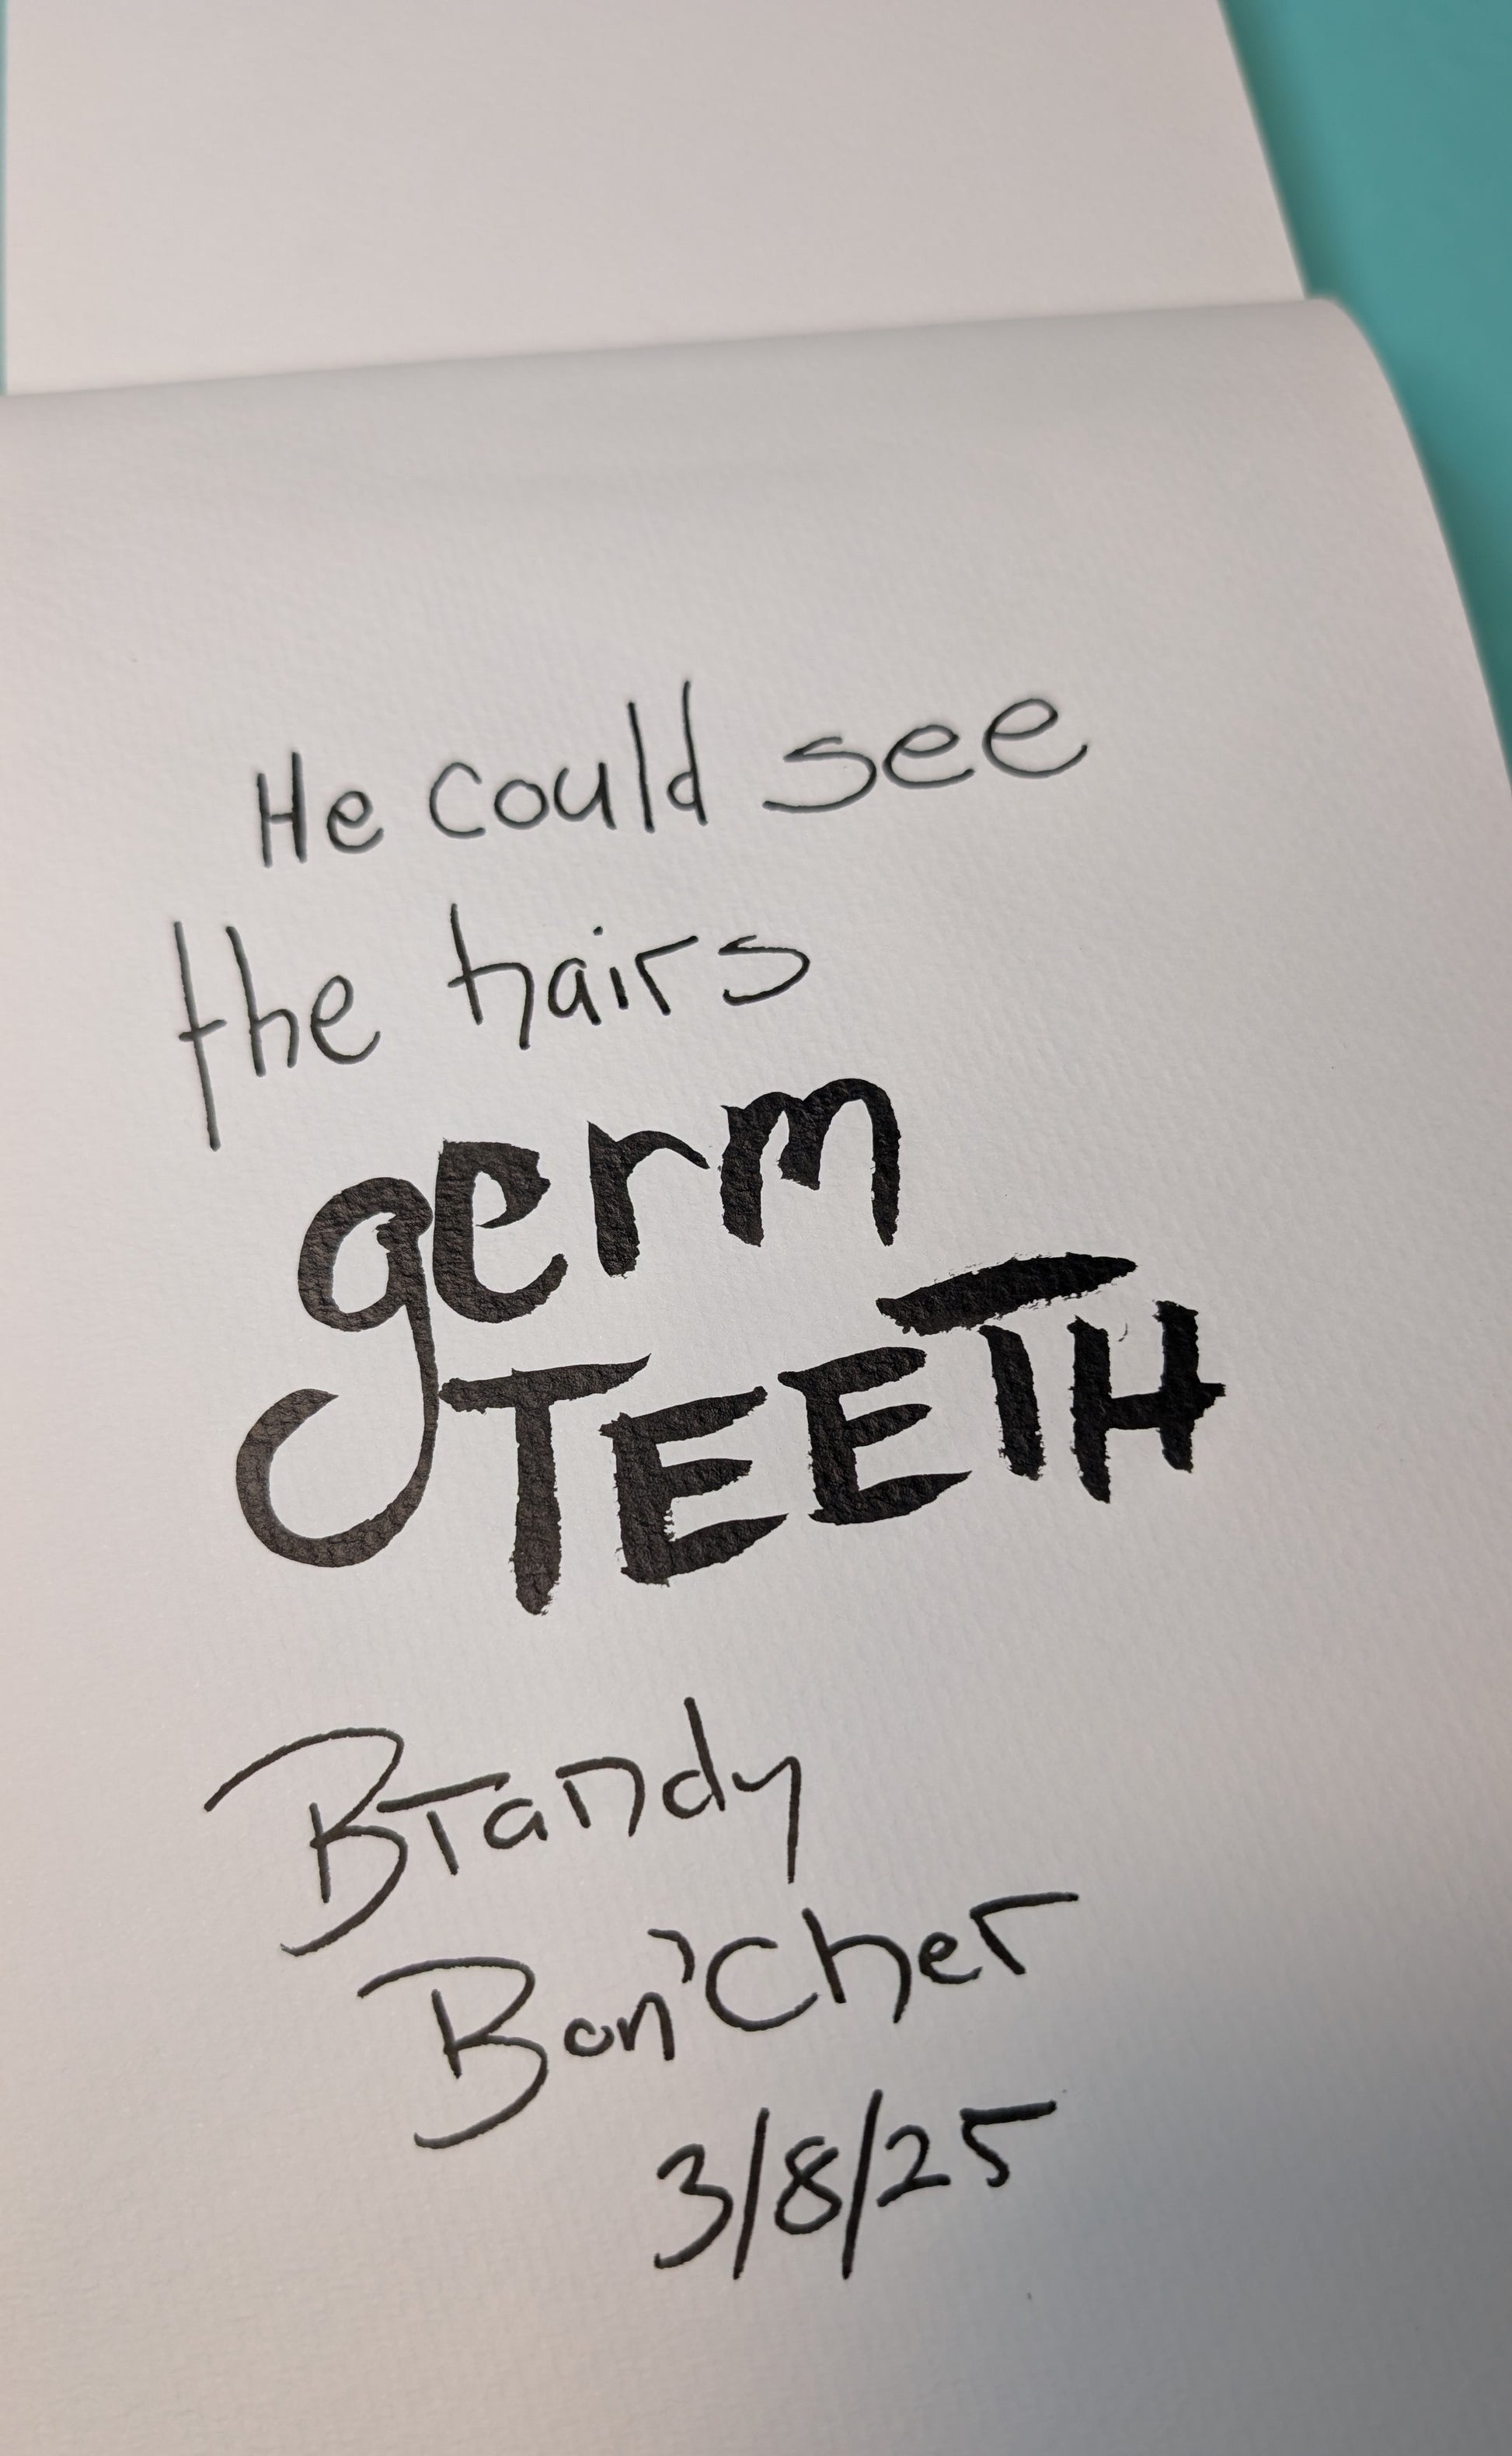 He could see
the hairs
germ
TEETH
Brandy
Bon'Cher
3/8/25